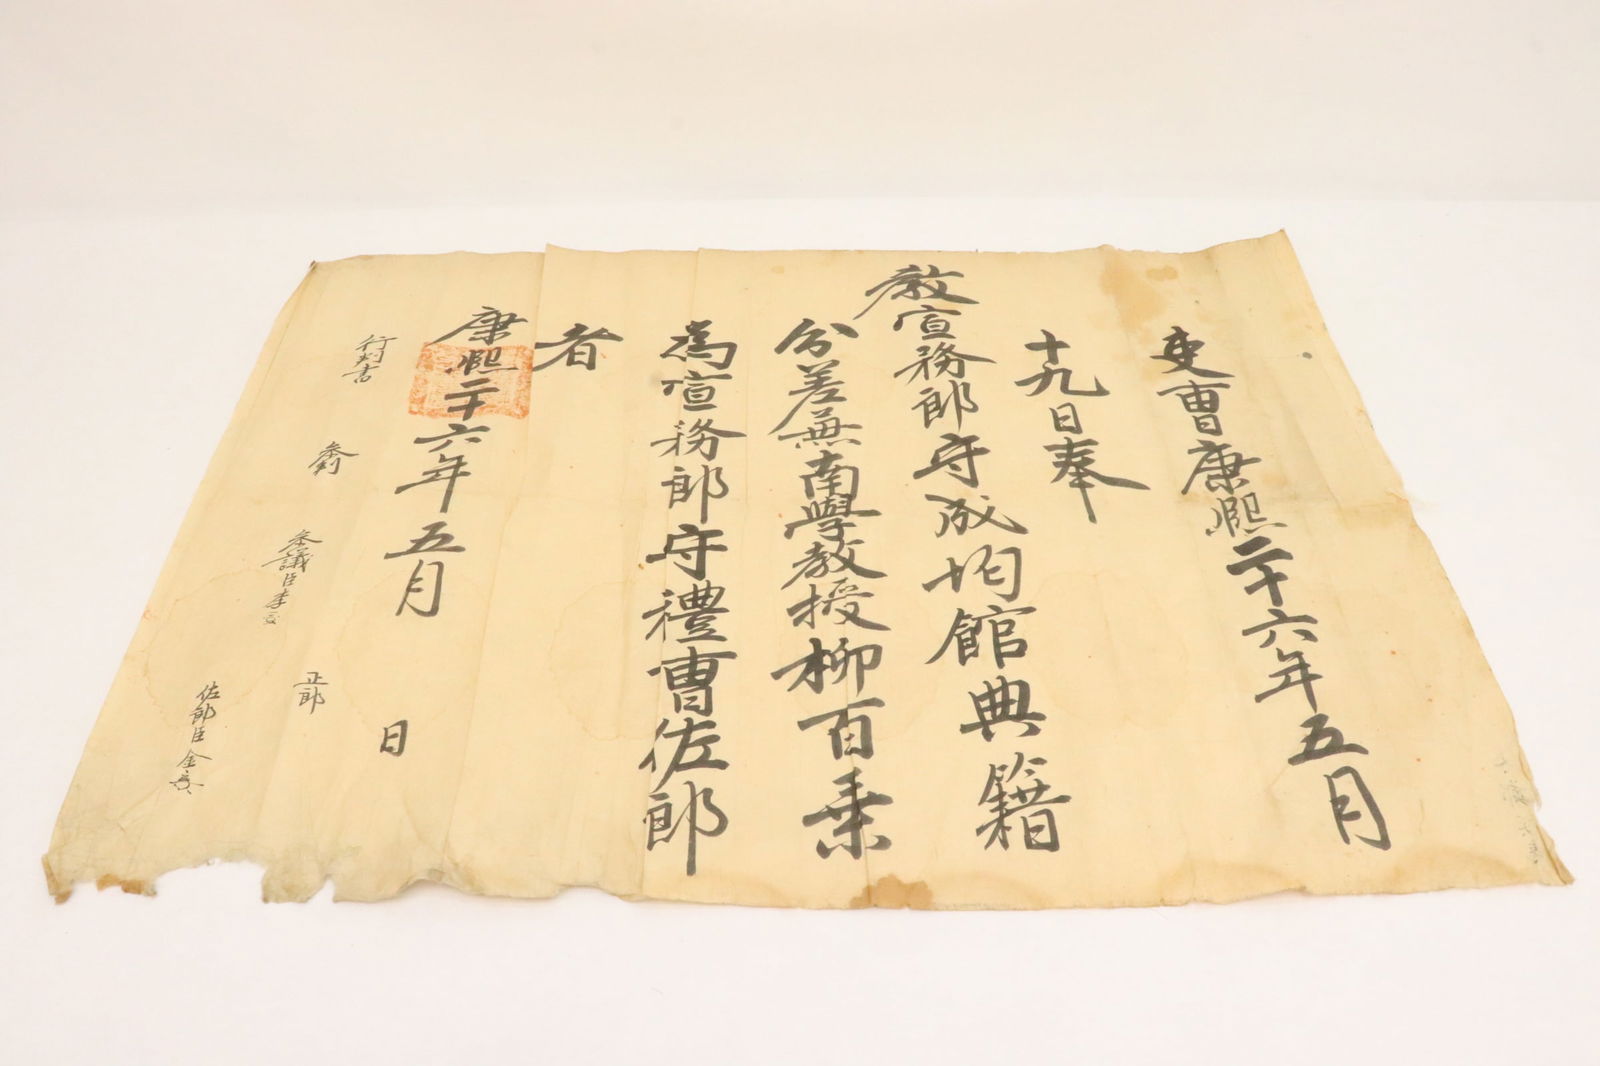 吏曹康熙二十六年五月
十九日奉
教宣務郎守成均館典籍
分差兼南學教授柳百乗
為宣務郎守禮曹佐郎
者
康熙二十六年五月 日
行判書
參判
參議臣李
正郎
佐郎臣金